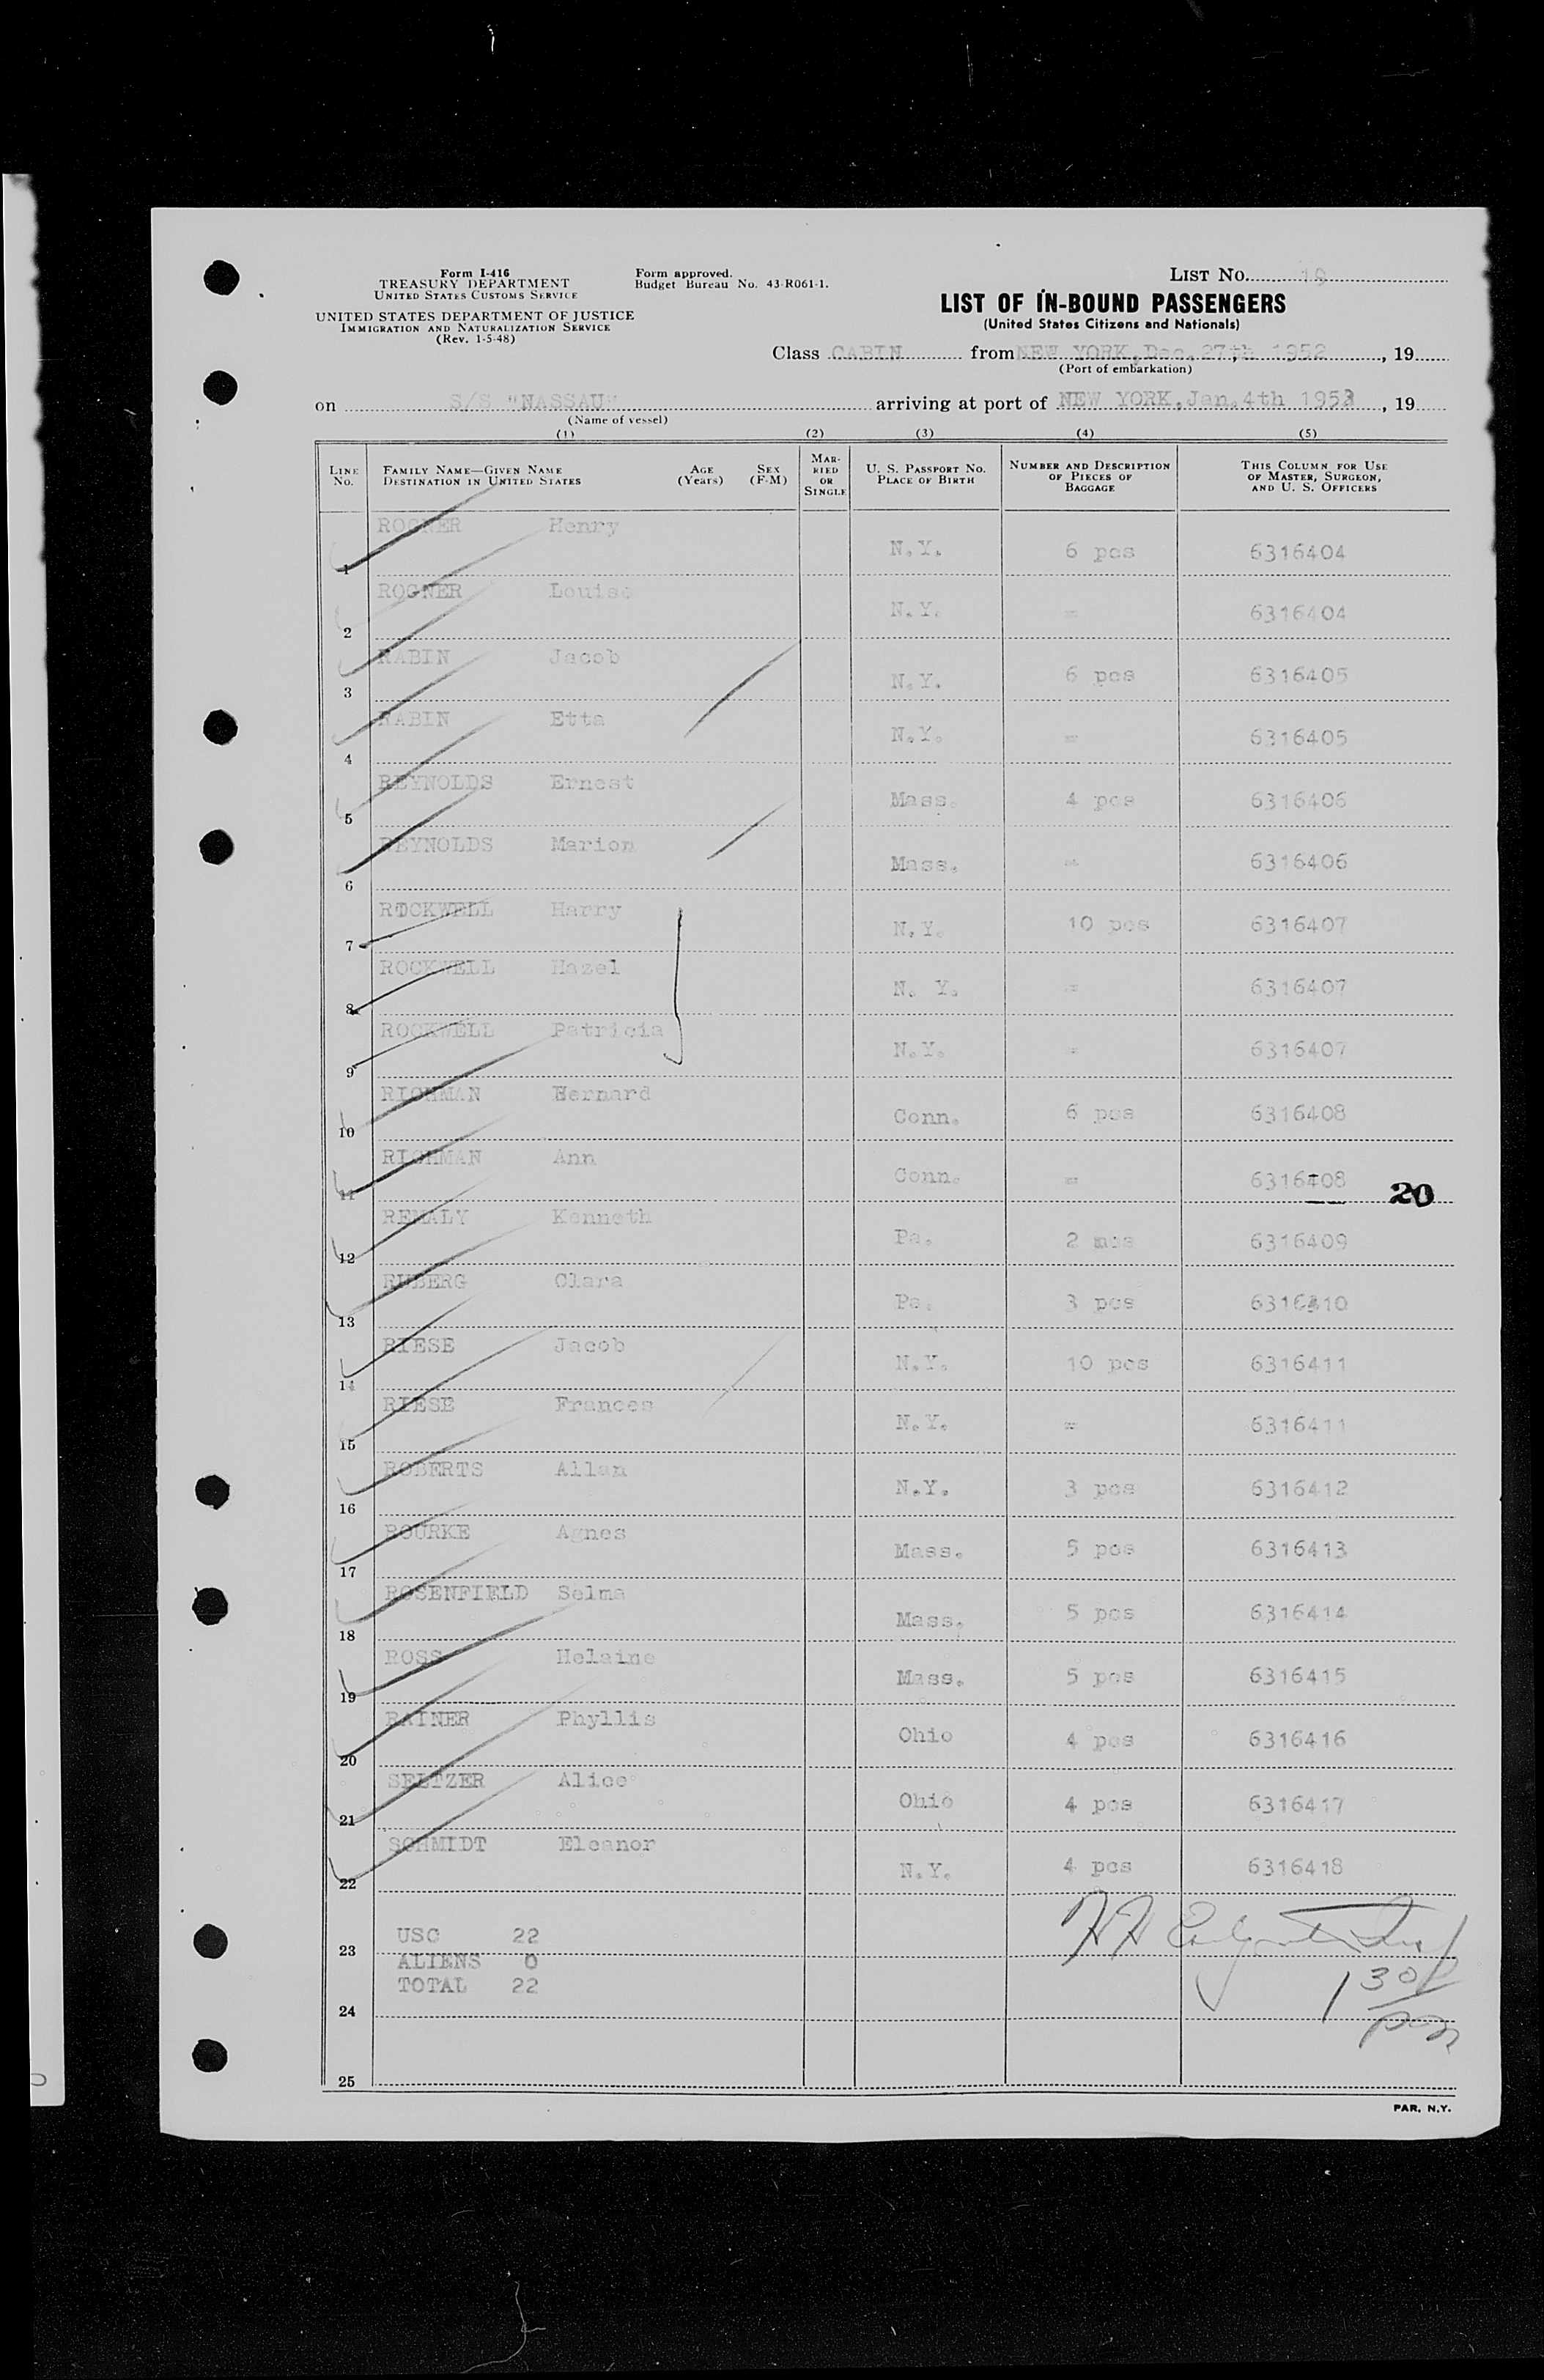 Form I-416
TREASURY DEPARTMENT
UNITED STATES CUSTOMS SERVICE
UNITED STATES DEPARTMENT OF JUSTICE
IMMIGRATION AND NATURALIZATION SERVICE
(Rev. 1-5-48)
Form approved.
Budget Bureau No. 43-R061-1.
LIST NO.
LIST OF IN-BOUND PASSENGERS
(United States Citizens and Nationals)
Class CABIN from NEW YORK, Dec. 27th 1952, 19
(Port of embarkation)
on S/S "NASSAU" arriving at port of NEW YORK, Jan. 4th 1953, 19
(Name of vessel)
(1) (2) (3) (4) (5)
LINE NO. FAMILY NAME—GIVEN NAME DESTINATION IN UNITED STATES AGE (Years) SEX (F-M) MARRIED OR SINGLE U. S. PASSPORT NO. PLACE OF BIRTH NUMBER AND DESCRIPTION OF PIECES OF BAGGAGE THIS COLUMN FOR USE OF MASTER, SURGEON, AND U. S. OFFICERS
1 ROGNER Henry N.Y. 6 pcs 6316404
2 ROGNER Louise N.Y. = 6316404
3 RABIN Jacob N.Y. 6 pcs 6316405
4 RABIN Etta N.Y. = 6316405
5 REYNOLDS Ernest Mass. 4 pcs 6316406
6 REYNOLDS Marion Mass. = 6316406
7 ROCKWELL Harry N.Y. 10 pcs 6316407
8 ROCKWELL Hazel N. Y. = 6316407
9 ROCKWELL Patricia N.Y. = 6316407
10 RICHMAN Bernard Conn. 6 pcs 6316408
11 RICHMAN Ann Conn. = 6316408 20
12 REMALY Kenneth Pa. 2 pcs 6316409
13 RUBERG Clara Pa. 3 pcs 6316410
14 RIESE Jacob N.Y. 10 pcs 6316411
15 RIESE Frances N.Y. = 6316411
16 ROBERTS Allan N.Y. 3 pcs 6316412
17 ROURKE Agnes Mass. 5 pcs 6316413
18 ROSENFIELD Selma Mass. 5 pcs 6316414
19 ROSS Helaine Mass. 5 pcs 6316415
20 RAINER Phyllis Ohio 4 pcs 6316416
21 SELTZER Alice Ohio 4 pcs 6316417
22 SCHMIDT Eleanor N.Y. 4 pcs 6316418
USC 22
23
ALIENS 0
TOTAL 22
130
pm
24
25
PAR. N.Y.